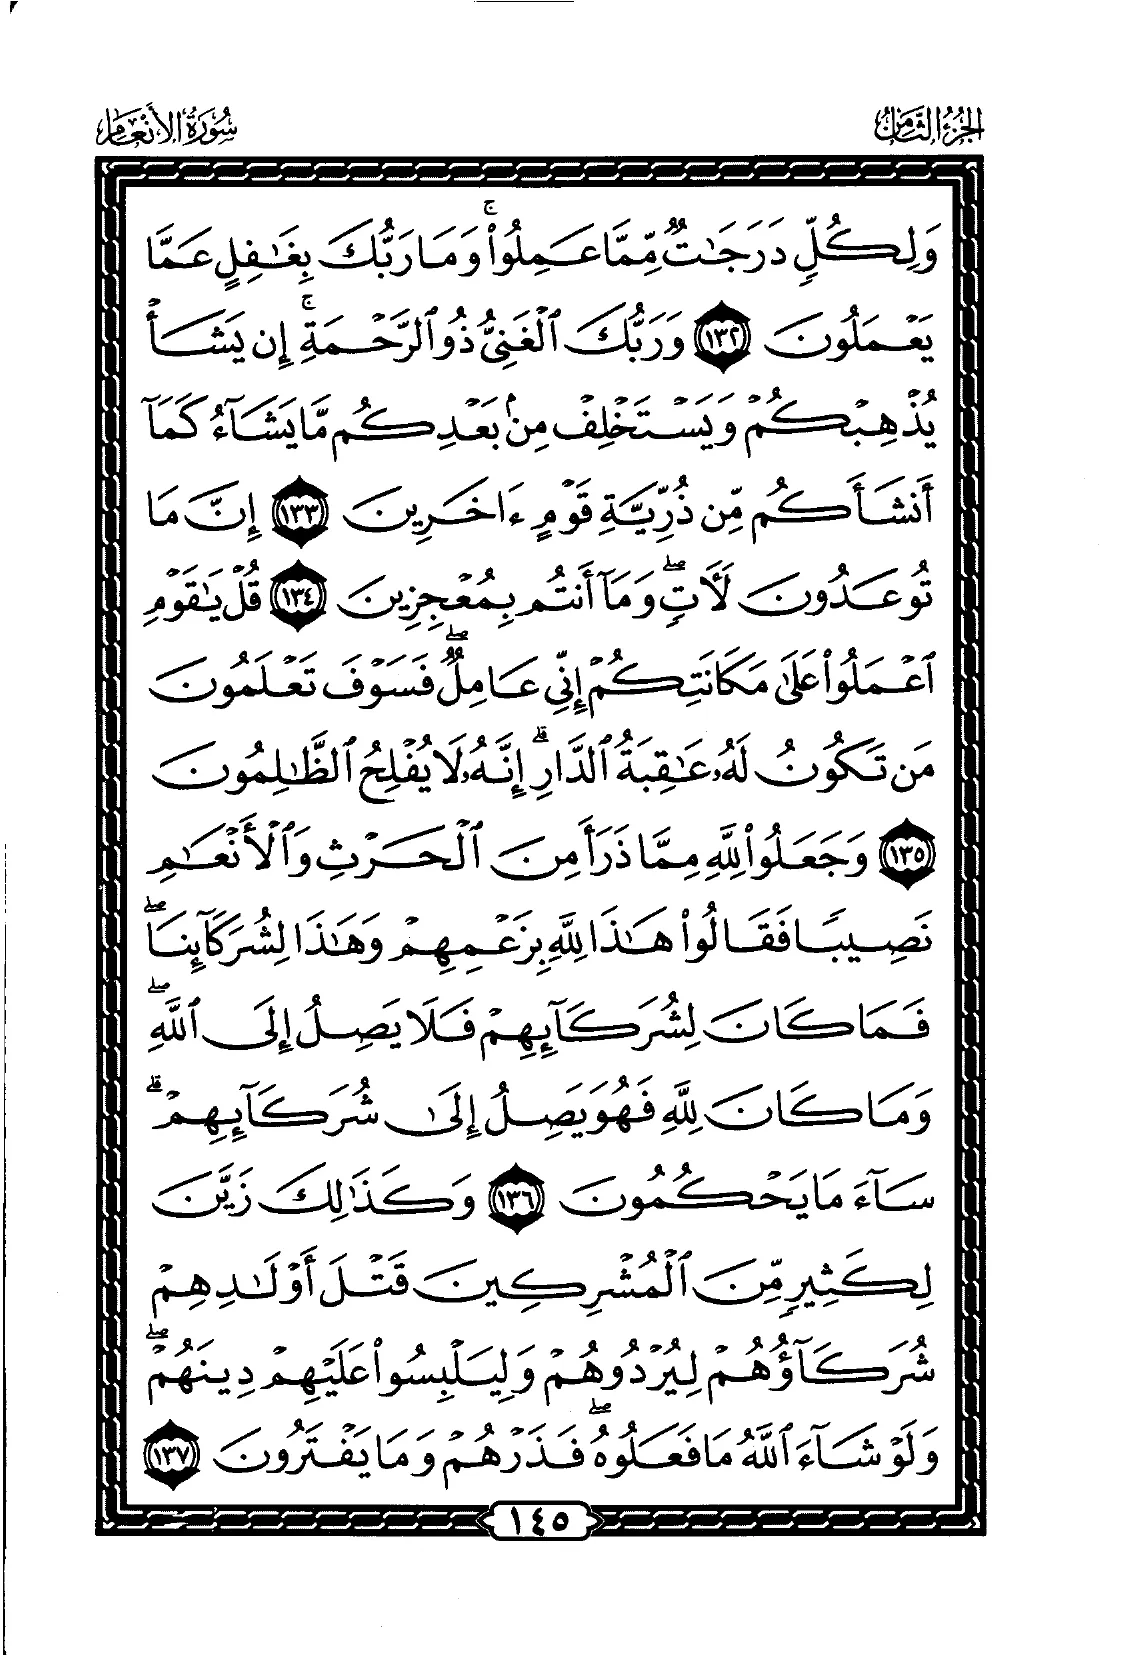 الجزء الثامن
سورة الأنعام
وَلِكُلٍّ دَرَجَٰتٌ مِّمَّا عَمِلُوا۟ ۚ وَمَا رَبُّكَ بِغَٰفِلٍ عَمَّا
يَعْمَلُونَ ١٣٢ وَرَبُّكَ ٱلْغَنِىُّ ذُو ٱلرَّحْمَةِ ۚ إِن يَشَأْ
يُذْهِبْكُمْ وَيَسْتَخْلِفْ مِنۢ بَعْدِكُم مَّا يَشَآءُ كَمَآ
أَنشَأَكُم مِّن ذُرِّيَّةِ قَوْمٍ ءَاخَرِينَ ١٣٣ إِنَّ مَا
تُوعَدُونَ لَـَٔاتٍ ۖ وَمَآ أَنتُم بِمُعْجِزِينَ ١٣٤ قُلْ يَٰقَوْمِ
ٱعْمَلُوا۟ عَلَىٰ مَكَانَتِكُمْ إِنِّى عَامِلٌ ۖ فَسَوْفَ تَعْلَمُونَ
مَن تَكُونُ لَهُۥ عَٰقِبَةُ ٱلدَّارِ ۗ إِنَّهُۥ لَا يُفْلِحُ ٱلظَّٰلِمُونَ
١٣٥ وَجَعَلُوا۟ لِلَّهِ مِمَّا ذَرَأَ مِنَ ٱلْحَرْثِ وَٱلْأَنْعَٰمِ
نَصِيبًا فَقَالُوا۟ هَٰذَا لِلَّهِ بِزَعْمِهِمْ وَهَٰذَا لِشُرَكَآئِنَا ۖ
فَمَا كَانَ لِشُرَكَآئِهِمْ فَلَا يَصِلُ إِلَى ٱللَّهِ ۖ
وَمَا كَانَ لِلَّهِ فَهُوَ يَصِلُ إِلَىٰ شُرَكَآئِهِمْ ۗ
سَآءَ مَا يَحْكُمُونَ ١٣٦ وَكَذَٰلِكَ زَيَّنَ
لِكَثِيرٍ مِّنَ ٱلْمُشْرِكِينَ قَتْلَ أَوْلَٰدِهِمْ
شُرَكَآؤُهُمْ لِيُرْدُوهُمْ وَلِيَلْبِسُوا۟ عَلَيْهِمْ دِينَهُمْ ۖ
وَلَوْ شَآءَ ٱللَّهُ مَا فَعَلُوهُ ۖ فَذَرْهُمْ وَمَا يَفْتَرُونَ ١٣٧
١٤٥